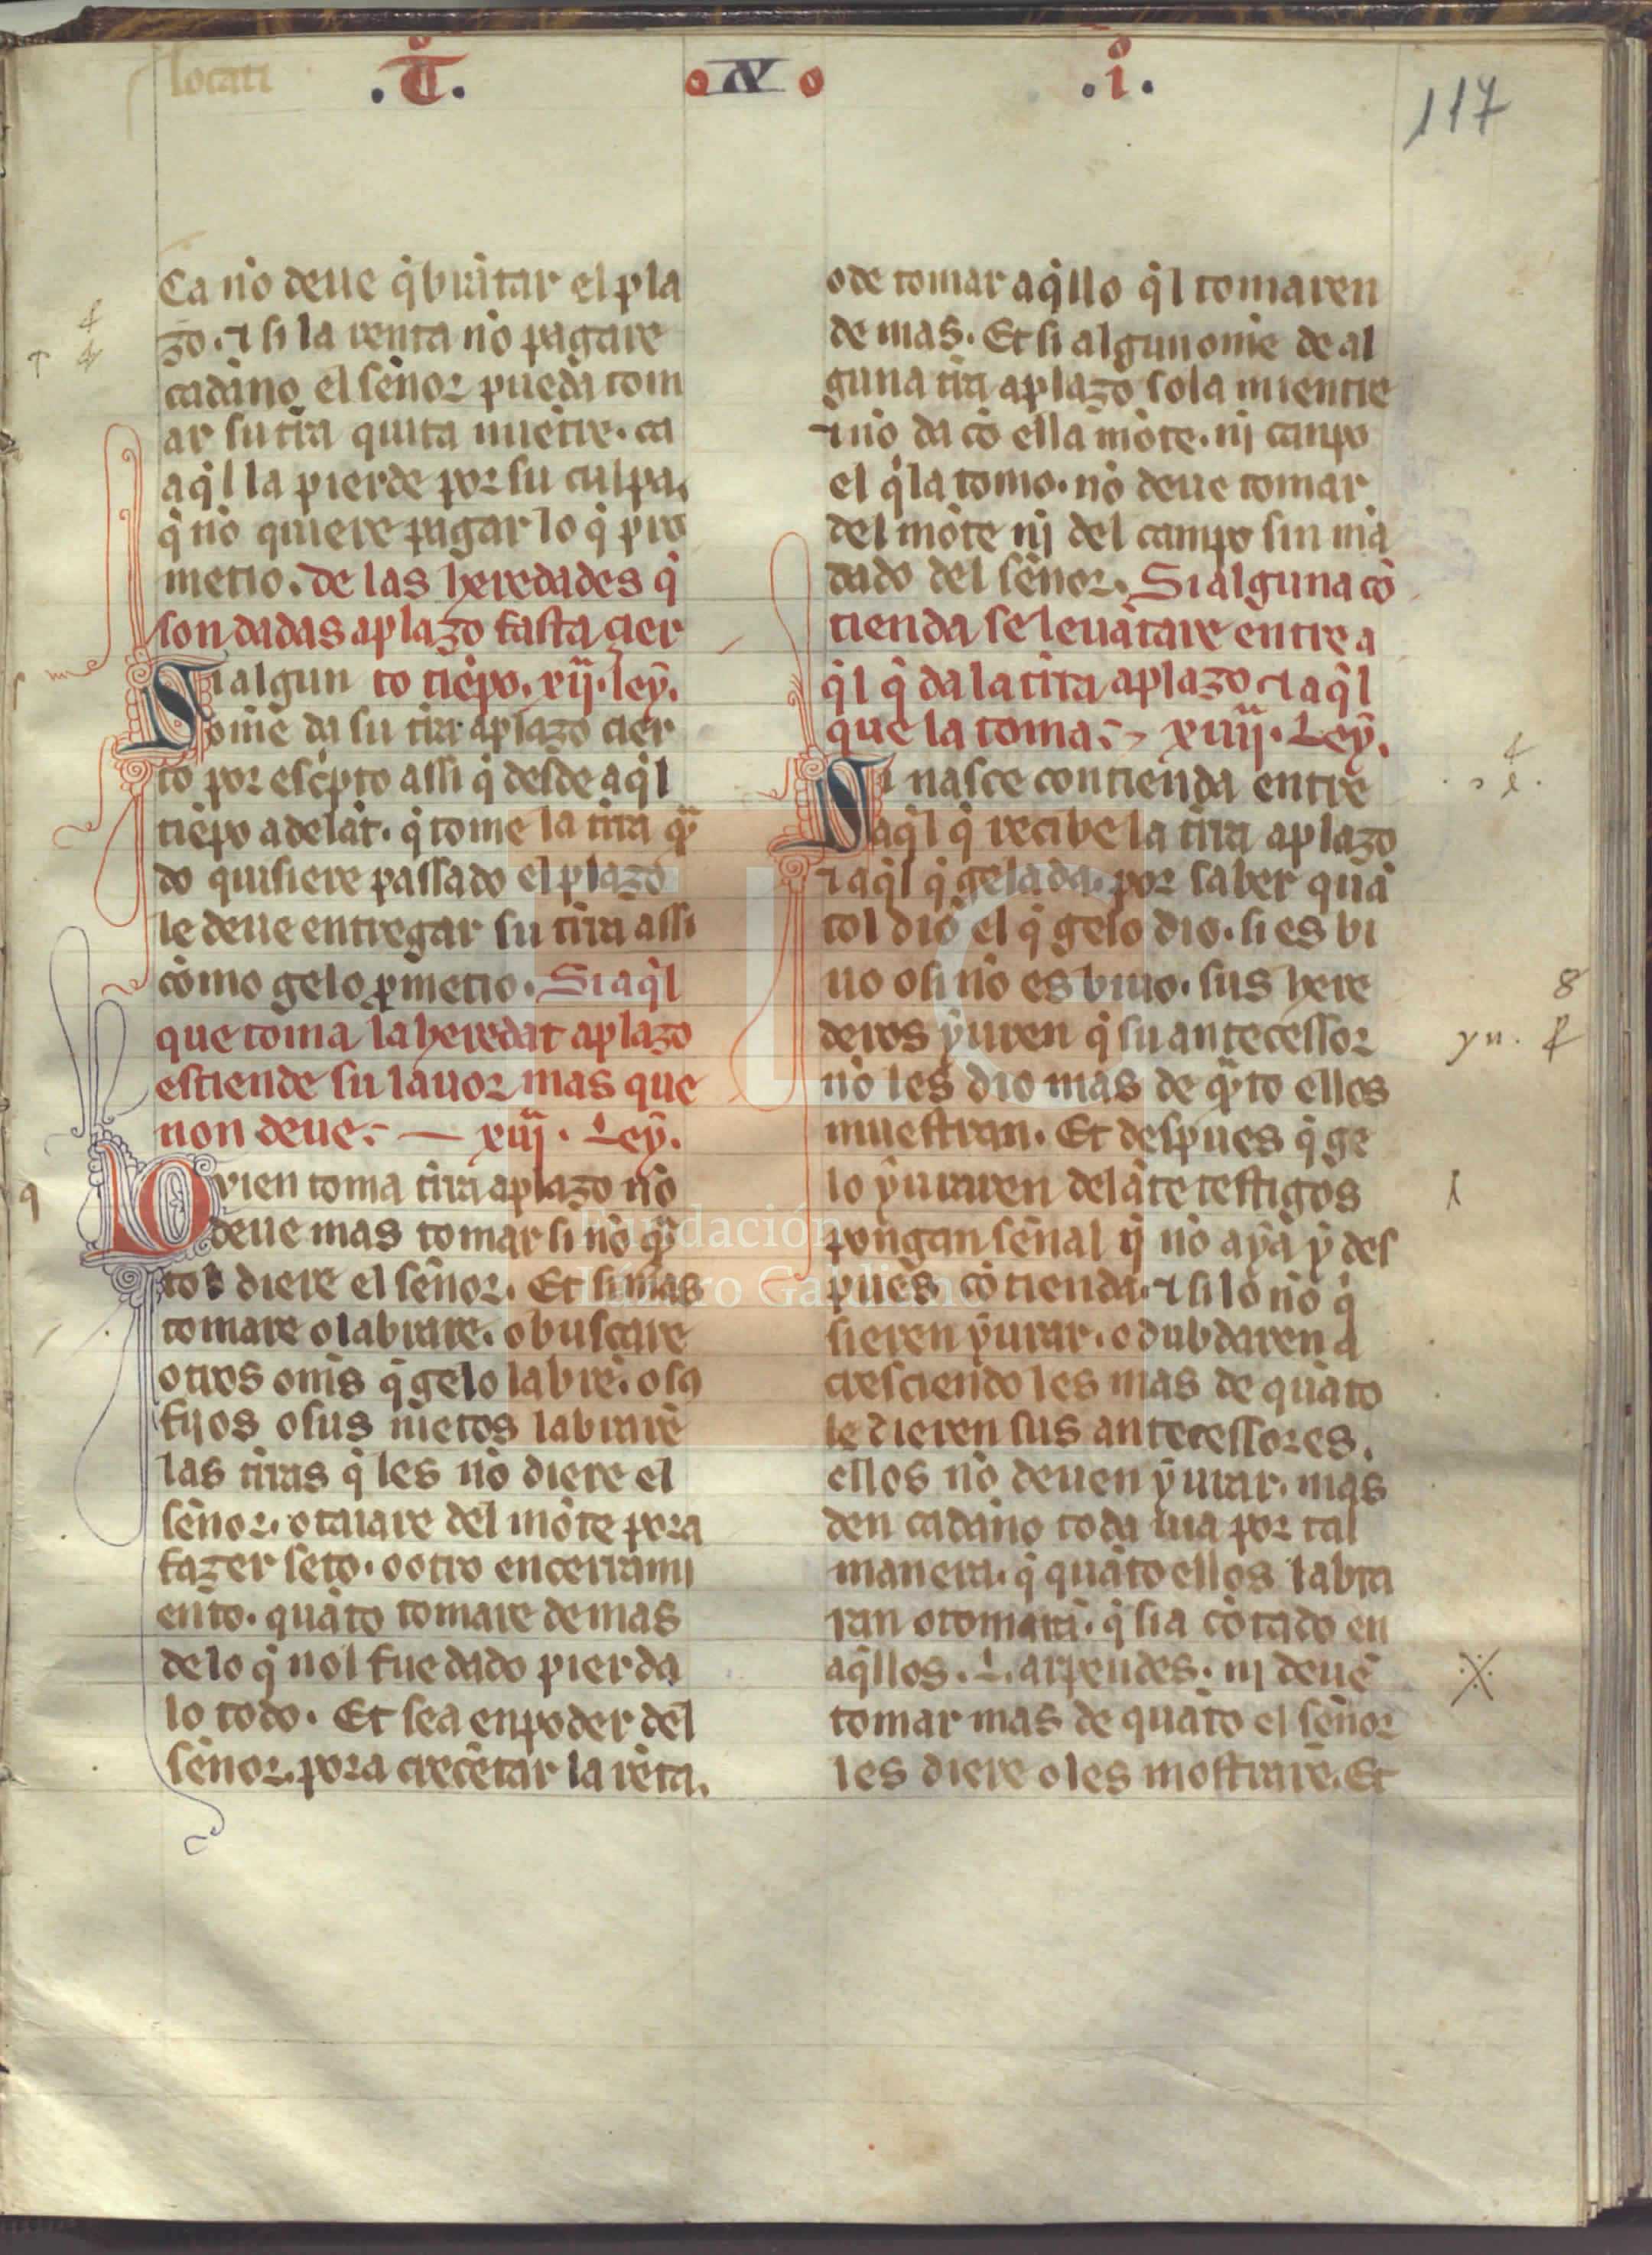 .Tº.
X
.iº.
117
Ca nõ deue q̃brãtar el pla
zo. ⁊ si la renta nõ pagare
cadãno el señor pueda tom
ar su tr̃ra quita miẽtre. ca
aq̃l la pierde por su culpa,
q̃ nõ quiere pagar lo q̃ pro
metio. de las heredades q̃
son dadas aplazo fasta cier
Si algun to tiẽpo. xij. ley.
om̃e da su tr̃ra aplazo cier
to por esc̃pto assi q̃ desde aq̃l
tiẽpo adelãt. q̃ tome la tr̃ra qᵃ̃
do quisiere passado el plazo
le deue entregar su tr̃ra assi
cõmo gelo ꝓmetio. Si aq̃l
que toma la heredat aplazo
estiende su lauor mas que
non deue. xiij. Ley.
Qvien toma tr̃ra aplazo nõ
deue mas tomar si nõ qᵃ̃
tol diere el señor. Et si mas
tomare o labrare. o buscare
otros om̃s q̃ gelo labrẽ. o sꝯ
fijos o sus nietos labrarẽ
las tr̃ras q̃ les nõ diere el
señor. o taiare del mõte pora
fazer seto. o otro encerrami
ento. quãto tomare demas
delo q̃ nol fue dado pierda
lo todo. Et sea en poder del
señor. pora crecẽtar la rẽta.
o de tomar aq̃llo q̃l tomaren
de mas. Et si algun om̃e de al
guna tr̃ra aplazo sola mientre
⁊ nõ da cõ ella mõte. nj canpo
el q̃ la tomo. nõ deue tomar
del mõte nj del campo sin mã
dado del señor. Si alguna cõ
tienda se leuãtare entre a
q̃l q̃ da la tr̃ra aplazo ⁊ aq̃l
que la toma. xiiij. Ley.
Si nasce contienda entre
aq̃l q̃ recibe la tr̃ra aplazo
⁊ aq̃l q̃ gela da. por saber quã
tol dio el q̃ gelo dio. si es bi
uo o si nõ es biuo. sus here
deros yuren q̃ su antecessor
nõ les dio mas de qᵃ̃to ellos
muestran. Et despues q̃ ge
lo yuraren delãte testigos
pongan señal q̃ nõ aya y des
pues cõtienda. ⁊ si lo nõ q̃
sieren yurar. o dubdaren a
cresciendo les mas de quãto
le dieren sus antecessores.
ellos nõ deuen yurar. mas
den cadãno toda uia por tal
manera. q̃ quãto ellos labra
ran o tomarã. q̃ sia cõtado en
aq̃llos. L. arpendes. nj deuẽ
tomar mas de quãto el señor
les diere o les mostrarẽ. Et
Fundación
Lázaro Galdiano